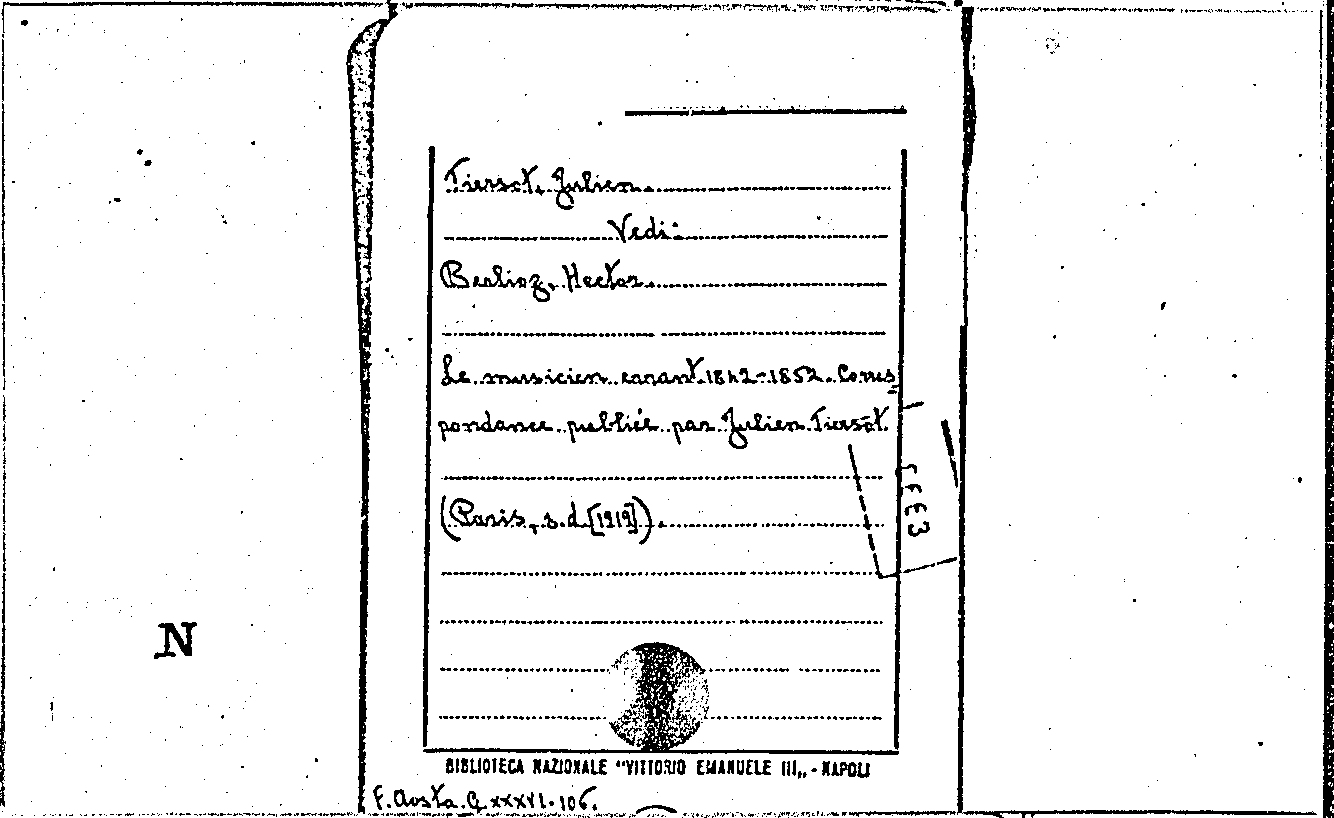 Tiersot, Julien.
Vedi:
Berlioz, Hector.
Le musicien errant 1842-1852. Corres
pondance publiée par Julien Tiersot.
(Paris, s.d. [1919]).
N
BIBLIOTECA NAZIONALE "VITTORIO EMANUELE III„ - NAPOLI
F. Aosta. G. XXXVI. 106.